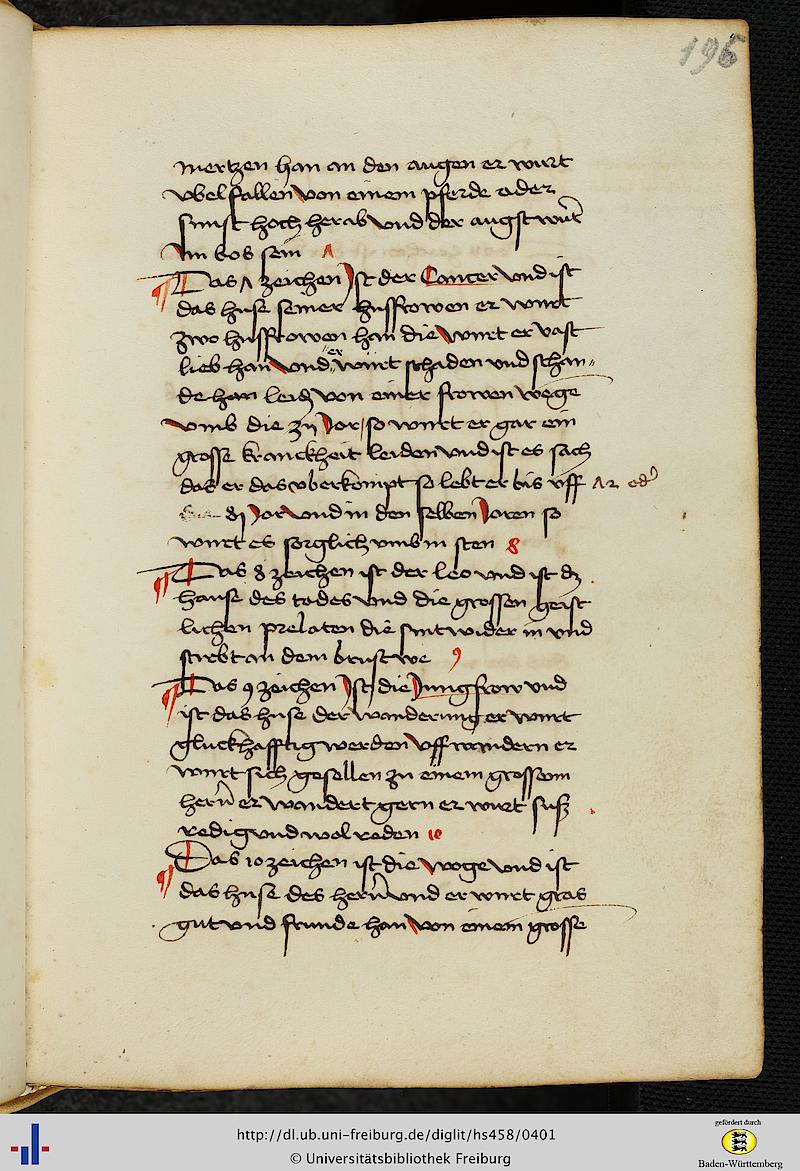 196
mertzen han an den augen er wurt
vbel fallen von einem pferde oder
sunst hoch herab vnd der augst wurt
im bos sein Λ
Das Λ zeichen Ist der Cancer vnd ist
das huse seiner husfrowen er wurt
zwo husfrowen han die wurt er vast
lieb han vnd er wurt schaden vnd schan-
de han leid von einer frowen wege
vmb die Jor so wurt er gar ein
grosse kranckheit leiden vnd ist es sach
das er das vberkompt so lebt er bis vff Λ2 od
Jor vnd in den selben Joren so
wurt es sorglich vmb in sten 8
Das 8 zeichen ist der leo vnd ist dz
hause des todes vnd die grossen geist
lichen prelaten die sint wider in vnd
stirbt an dem brust we 9
Das 9 zeichen Ist die Jungfrow vnd
ist das huse der wanderung er wurt
gluckhafftig werden vff wandern er
wurt sich gesellen zu einem grossem
hern er wandert gern er wurt susz
redig vnd wol reden 10
Das 10 zeichen ist die woge vnd ist
das huse des hern vnd er wurt gros
gut vnd frunde han von einem grosse
http://dl.ub.uni-freiburg.de/diglit/hs458/0401
© Universitätsbibliothek Freiburg
gefördert durch
Baden-Württemberg